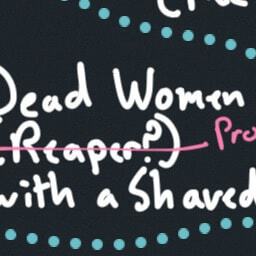 Dead Women
(Reaper?) Pro
with a Shaved